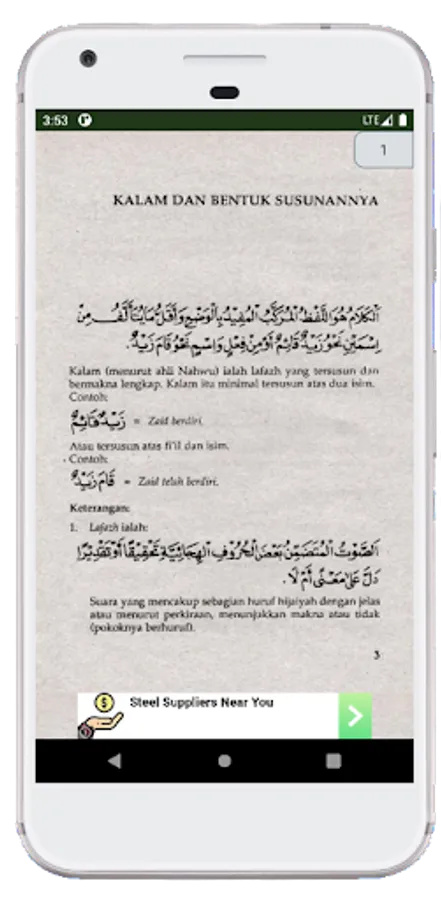 3:53 LTE
1
KALAM DAN BENTUK SUSUNANNYA
اَلْكَلَامُ هُوَ اللَّفْظُ الْمُرَكَّبُ الْمُفِيْدُ بِالْوَضْعِ وَأَقَلُّ مَايَتَأَلَّفُ مِنْ
اِسْمَيْنِ نَحْوُ زَيْدٌ قَائِمٌ أَوْ مِنْ فِعْلٍ وَاسْمٍ نَحْوُ قَامَ زَيْدٌ.
Kalam (menurut ahli Nahwu) ialah lafazh yang tersusun dan
bermakna lengkap. Kalam itu minimal tersusun atas dua isim.
Contoh:
زَيْدٌ قَائِمٌ = Zaid berdiri.
Atau tersusun atas fi'il dan isim.
Contoh:
قَامَ زَيْدٌ = Zaid telah berdiri.
Keterangan:
1. Lafazh ialah:
اَلصَّوْتُ الْمُتَضَمِّنُ بَعْضَ الْحُرُوْفِ الْهِجَائِيَّةِ تَحْقِيْقًا أَوْ تَقْدِيْرًا
دَلَّ عَلَى مَعْنًى أَمْ لَا.
Suara yang mencakup sebagian huruf hijaiyah dengan jelas
atau menurut perkiraan, menunjukkan makna atau tidak
(pokoknya berhuruf).
3
Steel Suppliers Near You